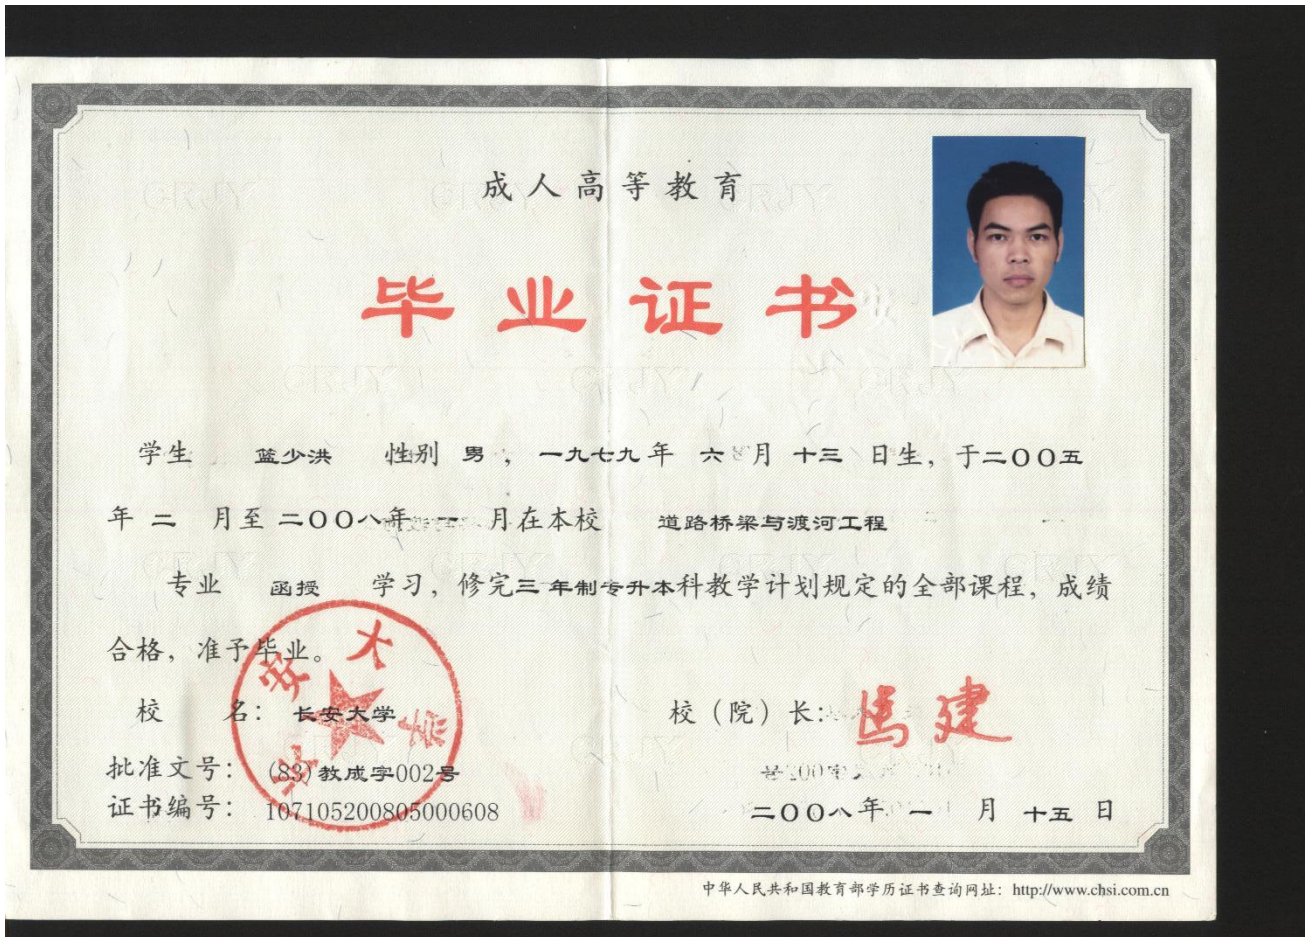 成人高等教育
毕业证书
学生 蓝少洪 性别 男，一九七九年 六 月 十三 日生，于二〇〇五
年 二 月至 二〇〇八年 一 月在本校 道路桥梁与渡河工程
专业 函授 学习，修完三年制专升本科教学计划规定的全部课程，成绩
合格，准予毕业。
长安大学
校 名：长安大学
校（院）长：马建
批准文号：(83)教成字002号
证书编号：107105200805000608
二〇〇八年 一 月 十五 日
中华人民共和国教育部学历证书查询网址：http://www.chsi.com.cn